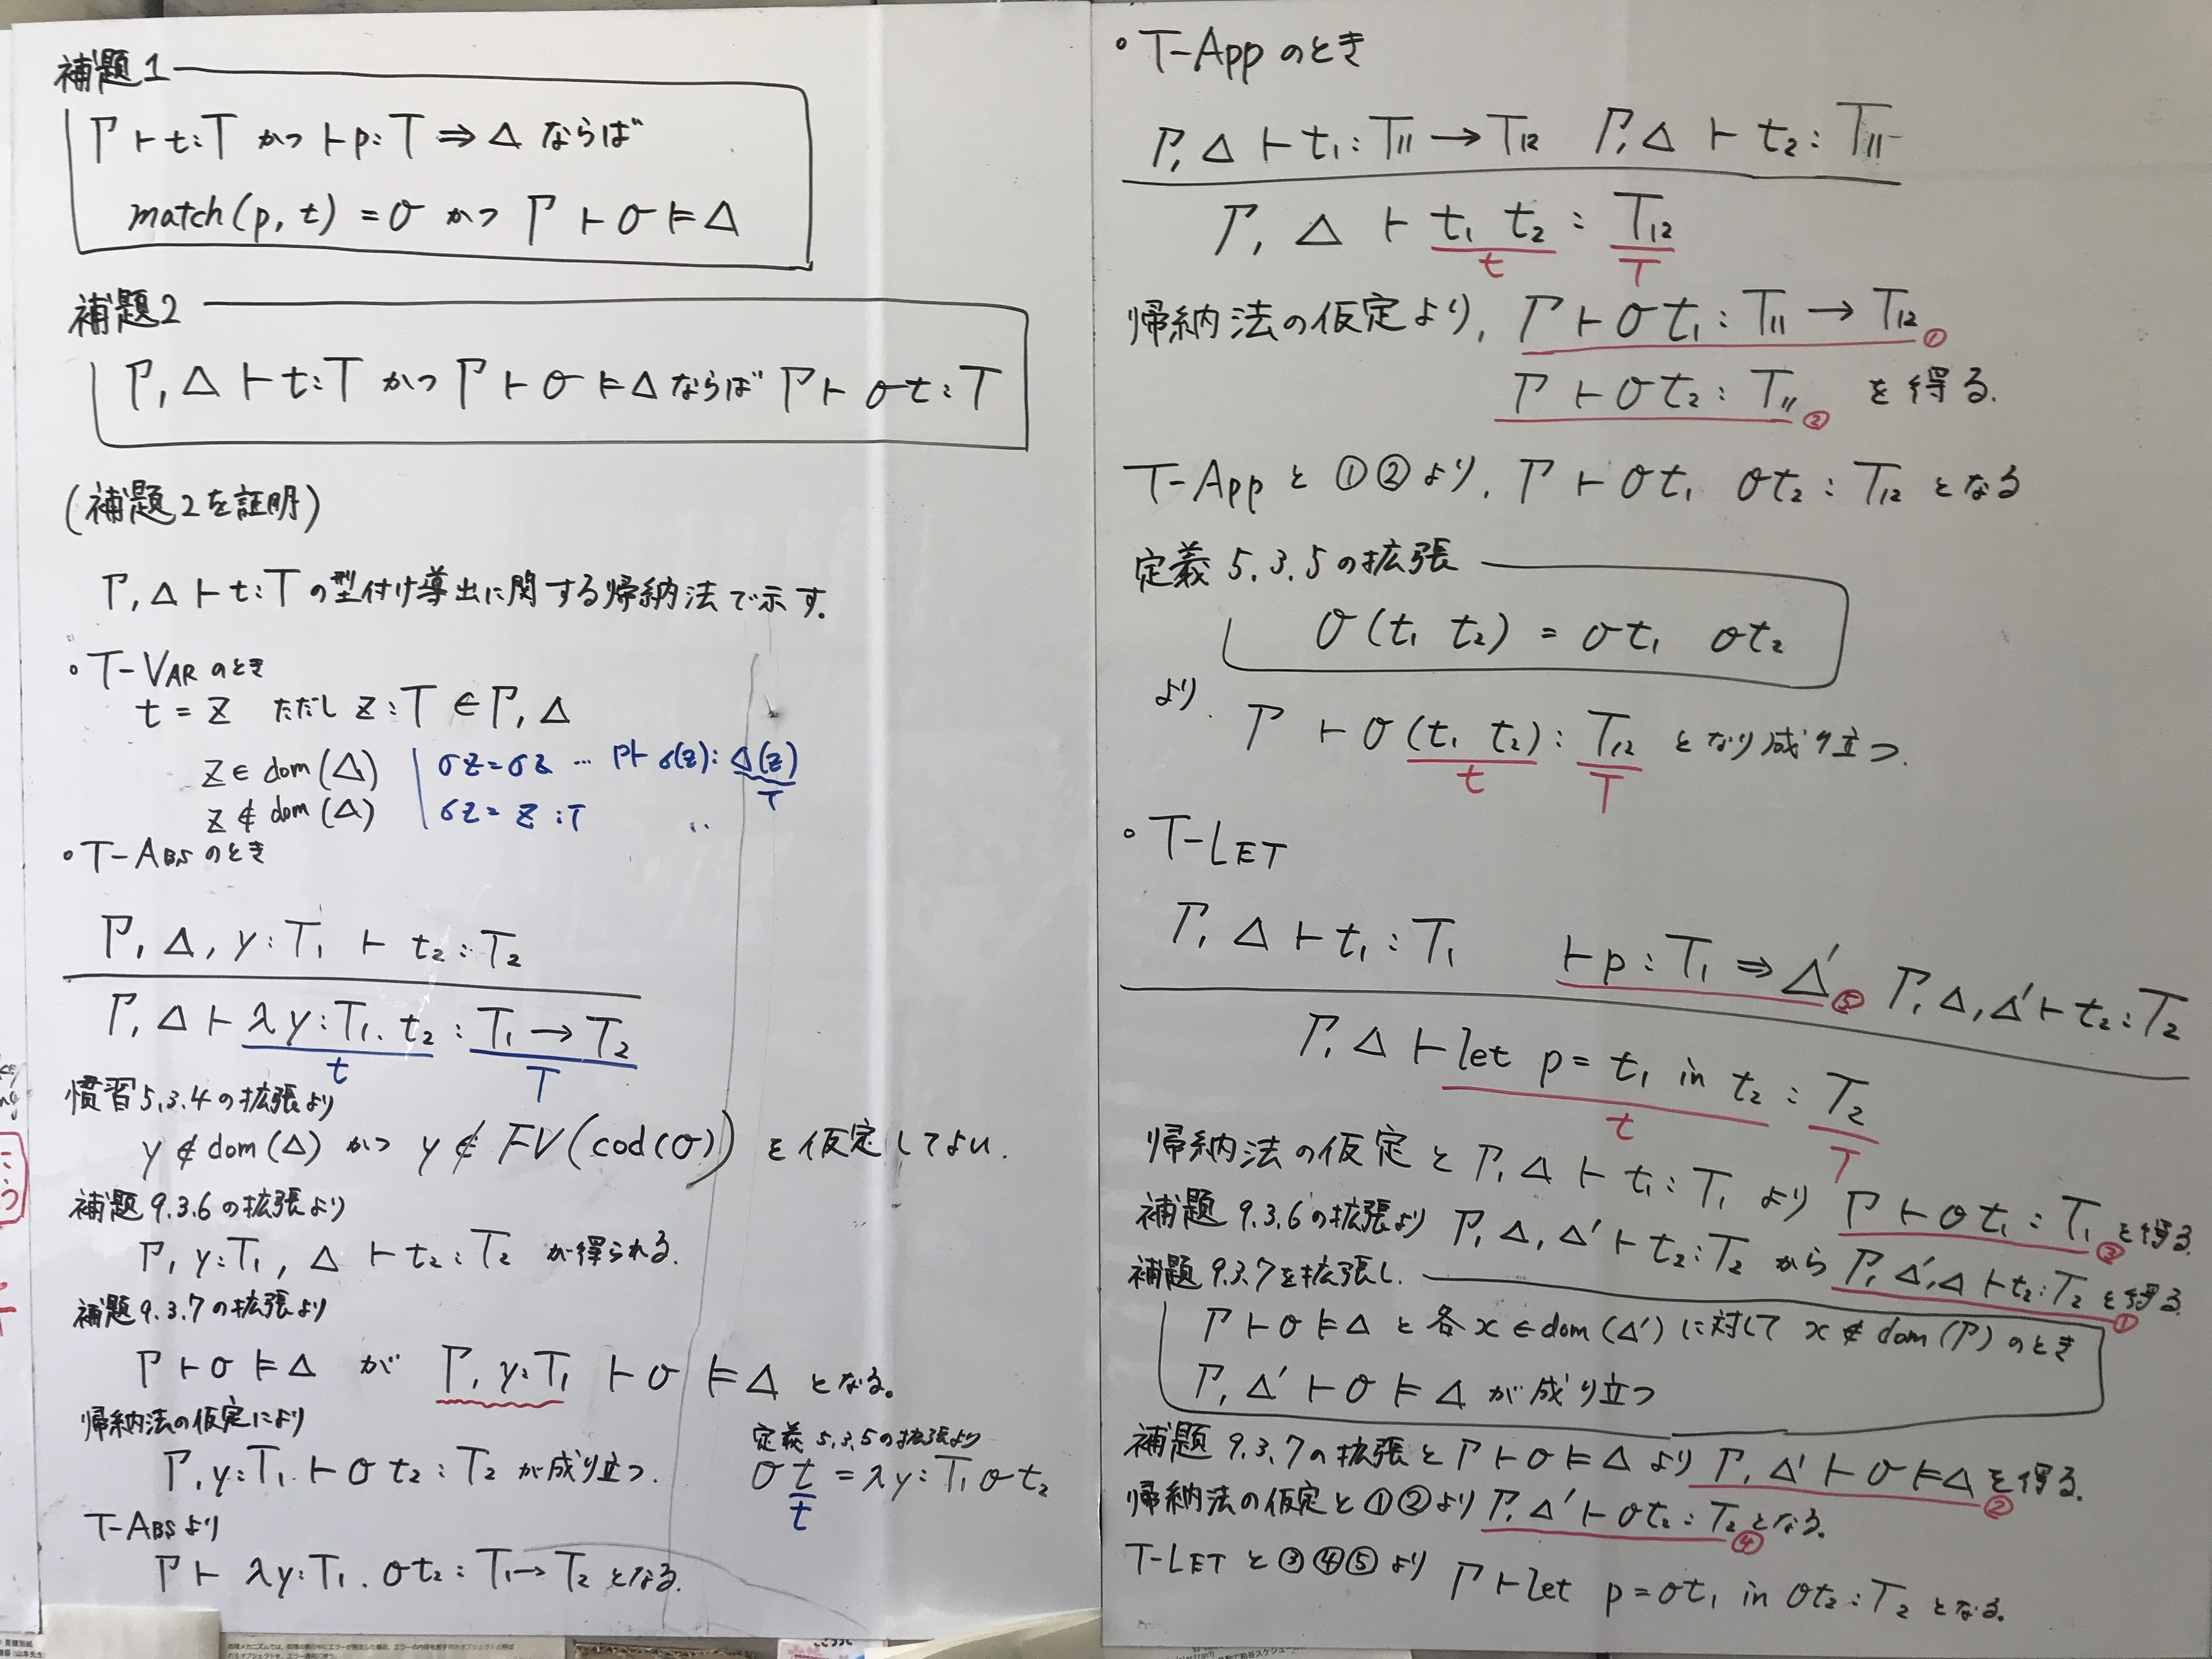 補題1
Γ ⊢ t:T かつ ⊢ p:T ⇒ Δ ならば
match(p, t) = σ かつ Γ ⊢ σ ⊨ Δ
補題2
Γ, Δ ⊢ t:T かつ Γ ⊢ σ ⊨ Δ ならば Γ ⊢ σt:T
(補題2を証明)
Γ, Δ ⊢ t:T の型付け導出に関する帰納法で示す.
・T-VAR のとき
t = z ただし z:T ∈ Γ, Δ
z ∈ dom(Δ) | σz=σz … Γ⊢ σ(z): Δ(z)
T
z ∉ dom(Δ) | σz = z :T
・T-ABS のとき
Γ, Δ, y:T₁ ⊢ t₂:T₂
Γ, Δ ⊢ λy:T₁. t₂ : T₁ → T₂
t T
慣習 5.3.4 の拡張より
y ∉ dom(Δ) かつ y ∉ FV(cod(σ)) を仮定してよい.
補題 9.3.6 の拡張より
Γ, y:T₁, Δ ⊢ t₂:T₂ が得られる.
補題 9.3.7 の拡張より
Γ ⊢ σ ⊨ Δ が Γ, y:T₁ ⊢ σ ⊨ Δ となる.
帰納法の仮定により
Γ, y:T₁ ⊢ σ t₂ : T₂ が成り立つ.
定義 5.3.5 の拡張より
σ t = λy:T₁ σ t₂
t
T-ABS より
Γ ⊢ λy:T₁. σt₂ : T₁→T₂ となる.
・T-App のとき
Γ, Δ ⊢ t₁:T₁₁ → T₁₂ Γ, Δ ⊢ t₂:T₁₁
Γ, Δ ⊢ t₁ t₂ : T₁₂
t T
帰納法の仮定より, Γ ⊢ σt₁ : T₁₁ → T₁₂ ①
Γ ⊢ σt₂ : T₁₁ ② を得る.
T-App と ①②より, Γ ⊢ σt₁ σt₂ : T₁₂ となる
定義 5.3.5 の拡張
σ(t₁ t₂) = σt₁ σt₂
より.
Γ ⊢ σ(t₁ t₂) : T₁₂ となり成り立つ.
t T
・T-LET
Γ, Δ ⊢ t₁:T₁ ⊢ p:T₁ ⇒ Δ′ ⑤ Γ, Δ, Δ′ ⊢ t₂:T₂
Γ, Δ ⊢ let p = t₁ in t₂ : T₂
t T
帰納法の仮定と Γ, Δ ⊢ t₁:T₁ より Γ ⊢ σt₁ : T₁ ③ を得る.
補題 9.3.6 の拡張より Γ, Δ, Δ′ ⊢ t₂:T₂ から Γ, Δ′, Δ ⊢ t₂:T₂ ① を得る.
補題 9.3.7 を拡張し.
Γ ⊢ σ ⊨ Δ と 各 x ∈ dom(Δ′) に対して x ∉ dom(Γ) のとき
Γ, Δ′ ⊢ σ ⊨ Δ が成り立つ
補題 9.3.7 の拡張と Γ ⊢ σ ⊨ Δ より Γ, Δ′ ⊢ σ ⊨ Δ ② を得る.
帰納法の仮定と ①②より Γ, Δ′ ⊢ σt₂ : T₂ ④ となる.
T-LET と ③④⑤より Γ ⊢ let p = σt₁ in σt₂ : T₂ となる.